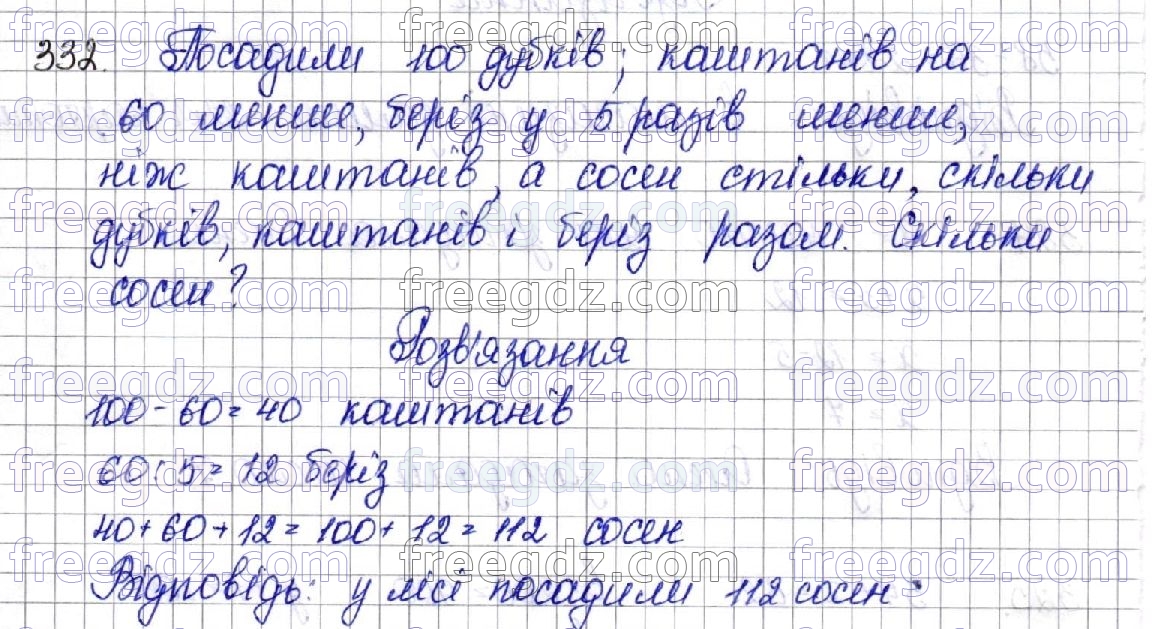 332. Посадили 100 дубків; каштанів на
60 менше, беріз у 5 разів менше,
ніж каштанів, а сосен стільки, скільки
дубків, каштанів і беріз разом. Скільки
сосен?
Розв'язання
100 - 60 = 40 каштанів
60 : 5 = 12 беріз
40 + 60 + 12 = 100 + 12 = 112 сосен
Відповідь: у лісі посадили 112 сосен.